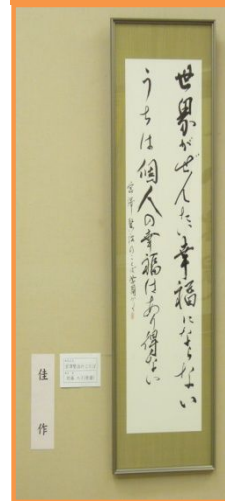 世界がぜんたい幸福にならない
うちは個人の幸福はあり得ない
佳作